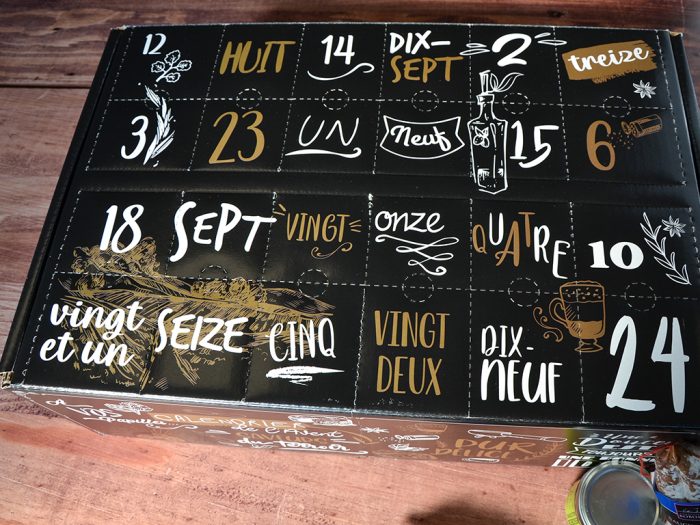 12 HUIT 14 DIX- 2 treize
SEPT
3 23 UN Neuf 15 6
18 SEPT VINGT onze QUATRE 10
vingt SEIZE CINQ VINGT DIX- 24
et un DEUX NEUF
A VOS CALENDRIER
papilles